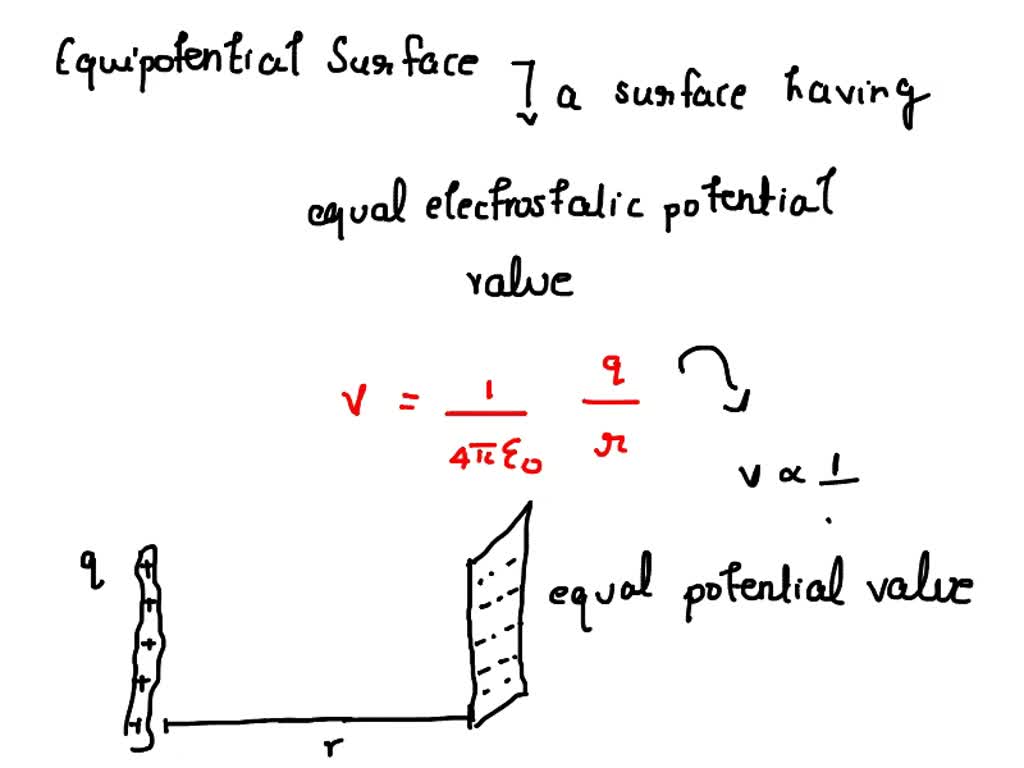 Equipotential Surface → a surface having
equal electrostatic potential
value
V = 1/4πε0 q/r
v ∝ 1/
q + + + + +
equal potential value
r